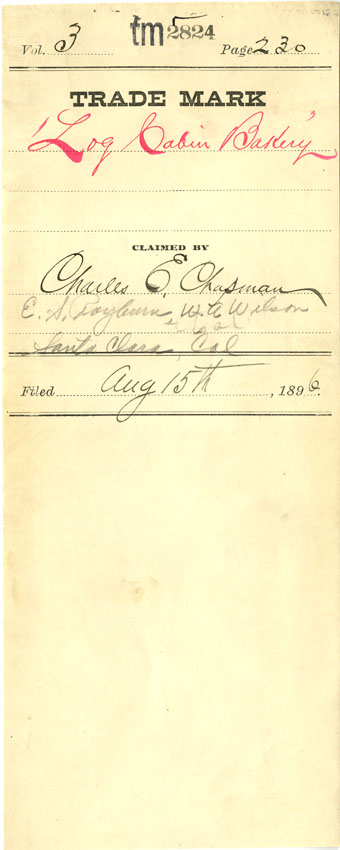 tm 2824
Vol. 3 Page 230
TRADE MARK
"Log Cabin Bakery"
CLAIMED BY
Charles E. Chapman
E. S. Rayburn, W. A. Wilson
Santa Clara, Cal
Filed Aug 15th, 1896.